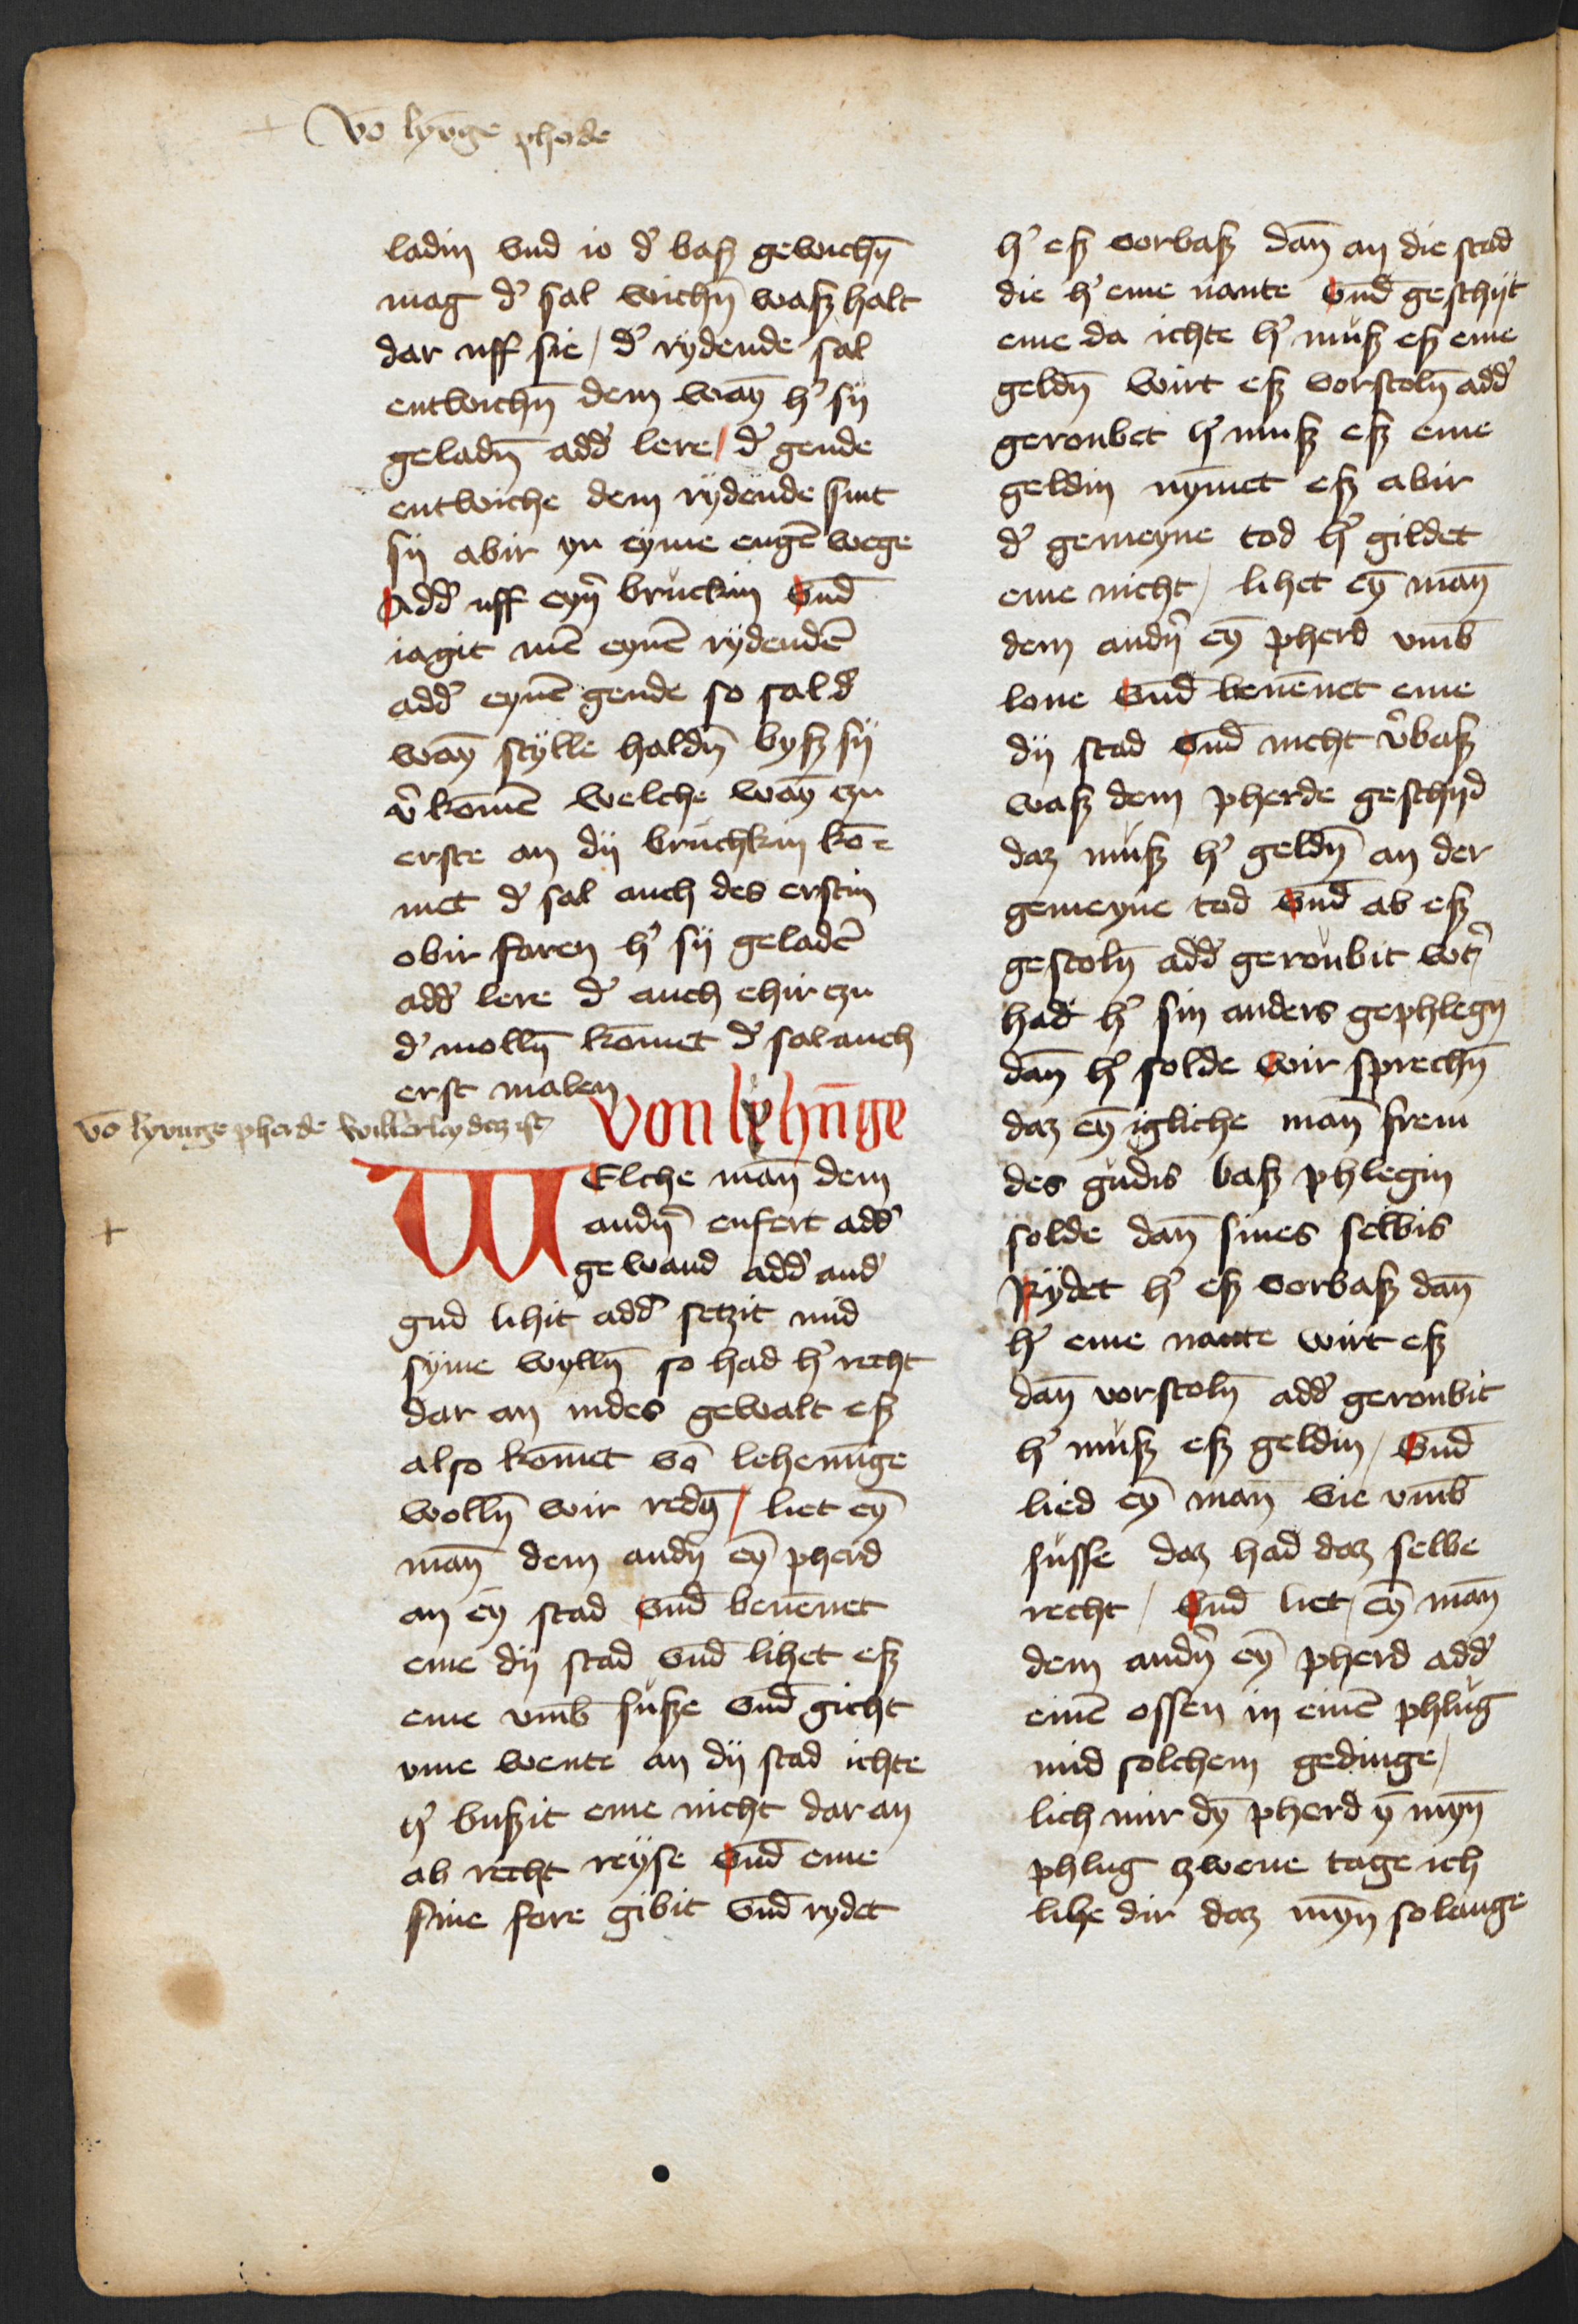 vō lyūge pherde
ladin vnd io d' basz gewichn̄
mag d' sal wichn̄ wasz halt
dar uff sie / d' rydende sal
entwichn̄ dem wayn̄ h' sij
geladn̄ add' lere / d' gende
entwiche dem rijdende sint
sij abir yn eyme engē wege
Add' uff eyn̄ brůckin vnd̄
iagit mē eynē rijdendē
add' eynē gende so sal d'
wayn̄ stylle haldn̄ bysz sij
v' komē welche wayn̄ czu
erste an dij brůchkin kō=
met d' sal auch des erstin
obir faren h' sij geladē
add' lere d' auch ehir czu
d' molln̄ kōmet d' sal auch
erst malen
von lyhn̄ge
vō lyunge pherde willerley daz ist
WElche man̄ dem
andn̄ enfert add'
gewand add' and'
gud lihit add' setzit mid
syme wylln̄ so had h' recht
dar an indes gewalt esz
also kōmet vō lehenn̄ge
wolln̄ wir redn̄ / liet eyn̄
man̄ dem andn̄ eyn̄ pherd
an eyn̄ stad vnd̄ benēnet
eme dij stad vnd̄ lihet esz
eme vmb̄ sůsze vnd̄ gicht
vme wente an dij stad ichte
h' buszit eme nicht dar an
ab recht reyse vnd̄ eme
sine fore gibit vnd̄ rydet
h' esz vorbasz dan̄ an die stad
die h' eme nante vnd̄ geschijt
eme da ichte h' můsz esz eme
geldn̄ wirt esz vorstoln̄ add'
geroubet h' musz esz eme
geldin nȳmet esz abir
d' gemeyne tod h' gildet
eme nicht / lihet eyn̄ man̄
dem andn̄ eyn̄ pherd vmb̄
lone vnd̄ benēnet eme
dij stad vnd̄ nicht v'basz
wasz dem pherde geschijd
daz můsz h' geldn̄ an der
gemeyne tod vnd̄ ab esz
gestoln̄ add' geroůbit wt'
had h' sin anders gephlegn̄
dan̄ h' solde wir sprechn̄
daz eyn̄ igliche man̄ frem
des gůdis basz phlegin
solde dan̄ sines selbis
Rijdet h' esz vorbasz dan̄
h' eme nante wirt esz
dan̄ vorstoln̄ add' geroubit
h' můsz esz geldin / vnd̄
lied eyn̄ man̄ vie vmb̄
sůsse daz had daz selbe
recht / vnd̄ liet / eyn̄ man̄
dem andn̄ eyn̄ pherd add'
einē ossen in einē phlůg
mid solchem gedinge /
lich mir dyn̄ pherd yn̄ mynn̄
phlug zwene tage ich
lihe dir daz mynn̄ so lange